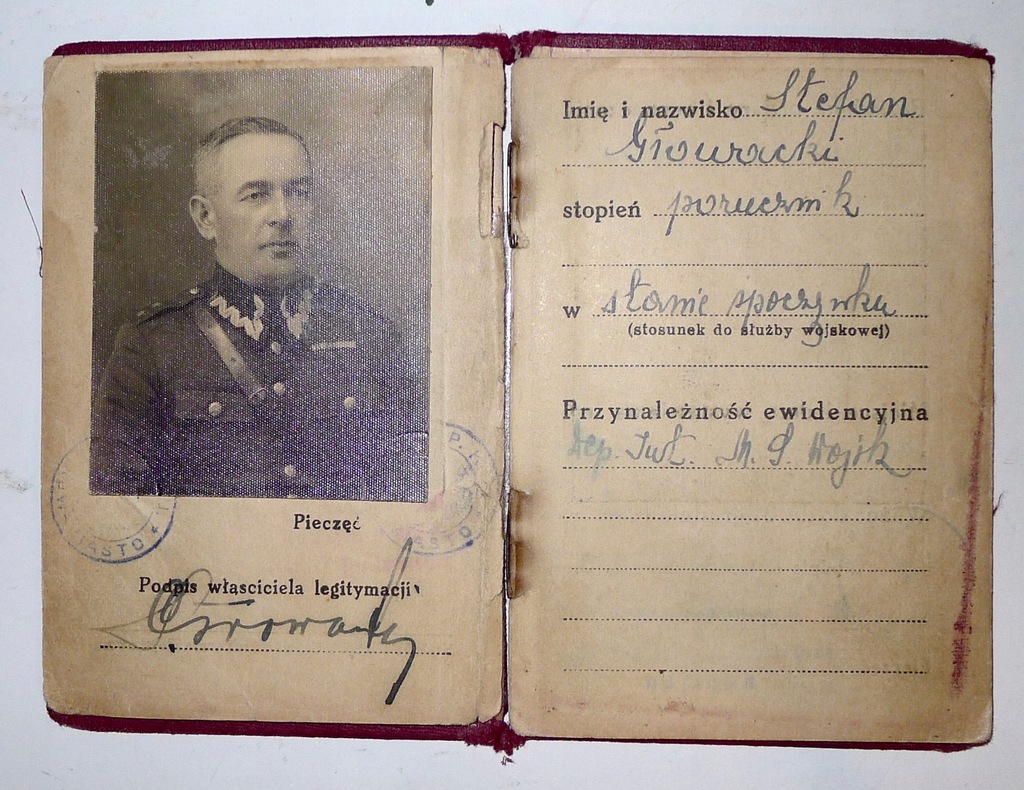 Pieczęć
MIASTO ★
P.
ASTO
Podpis właściciela legitymacji
Głowacki
Imię i nazwisko Stefan
Głowacki
stopień porucznik
w stanie spoczynku
(stosunek do służby wojskowej)
Przynależność ewidencyjna
Dep. Int. M. S. Wojsk